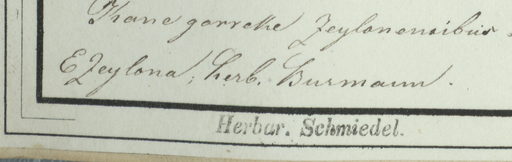 Thane gorreke Zeylonensibus.
E Zeylona, herb. Burmann.
Herbar. Schmiedel.